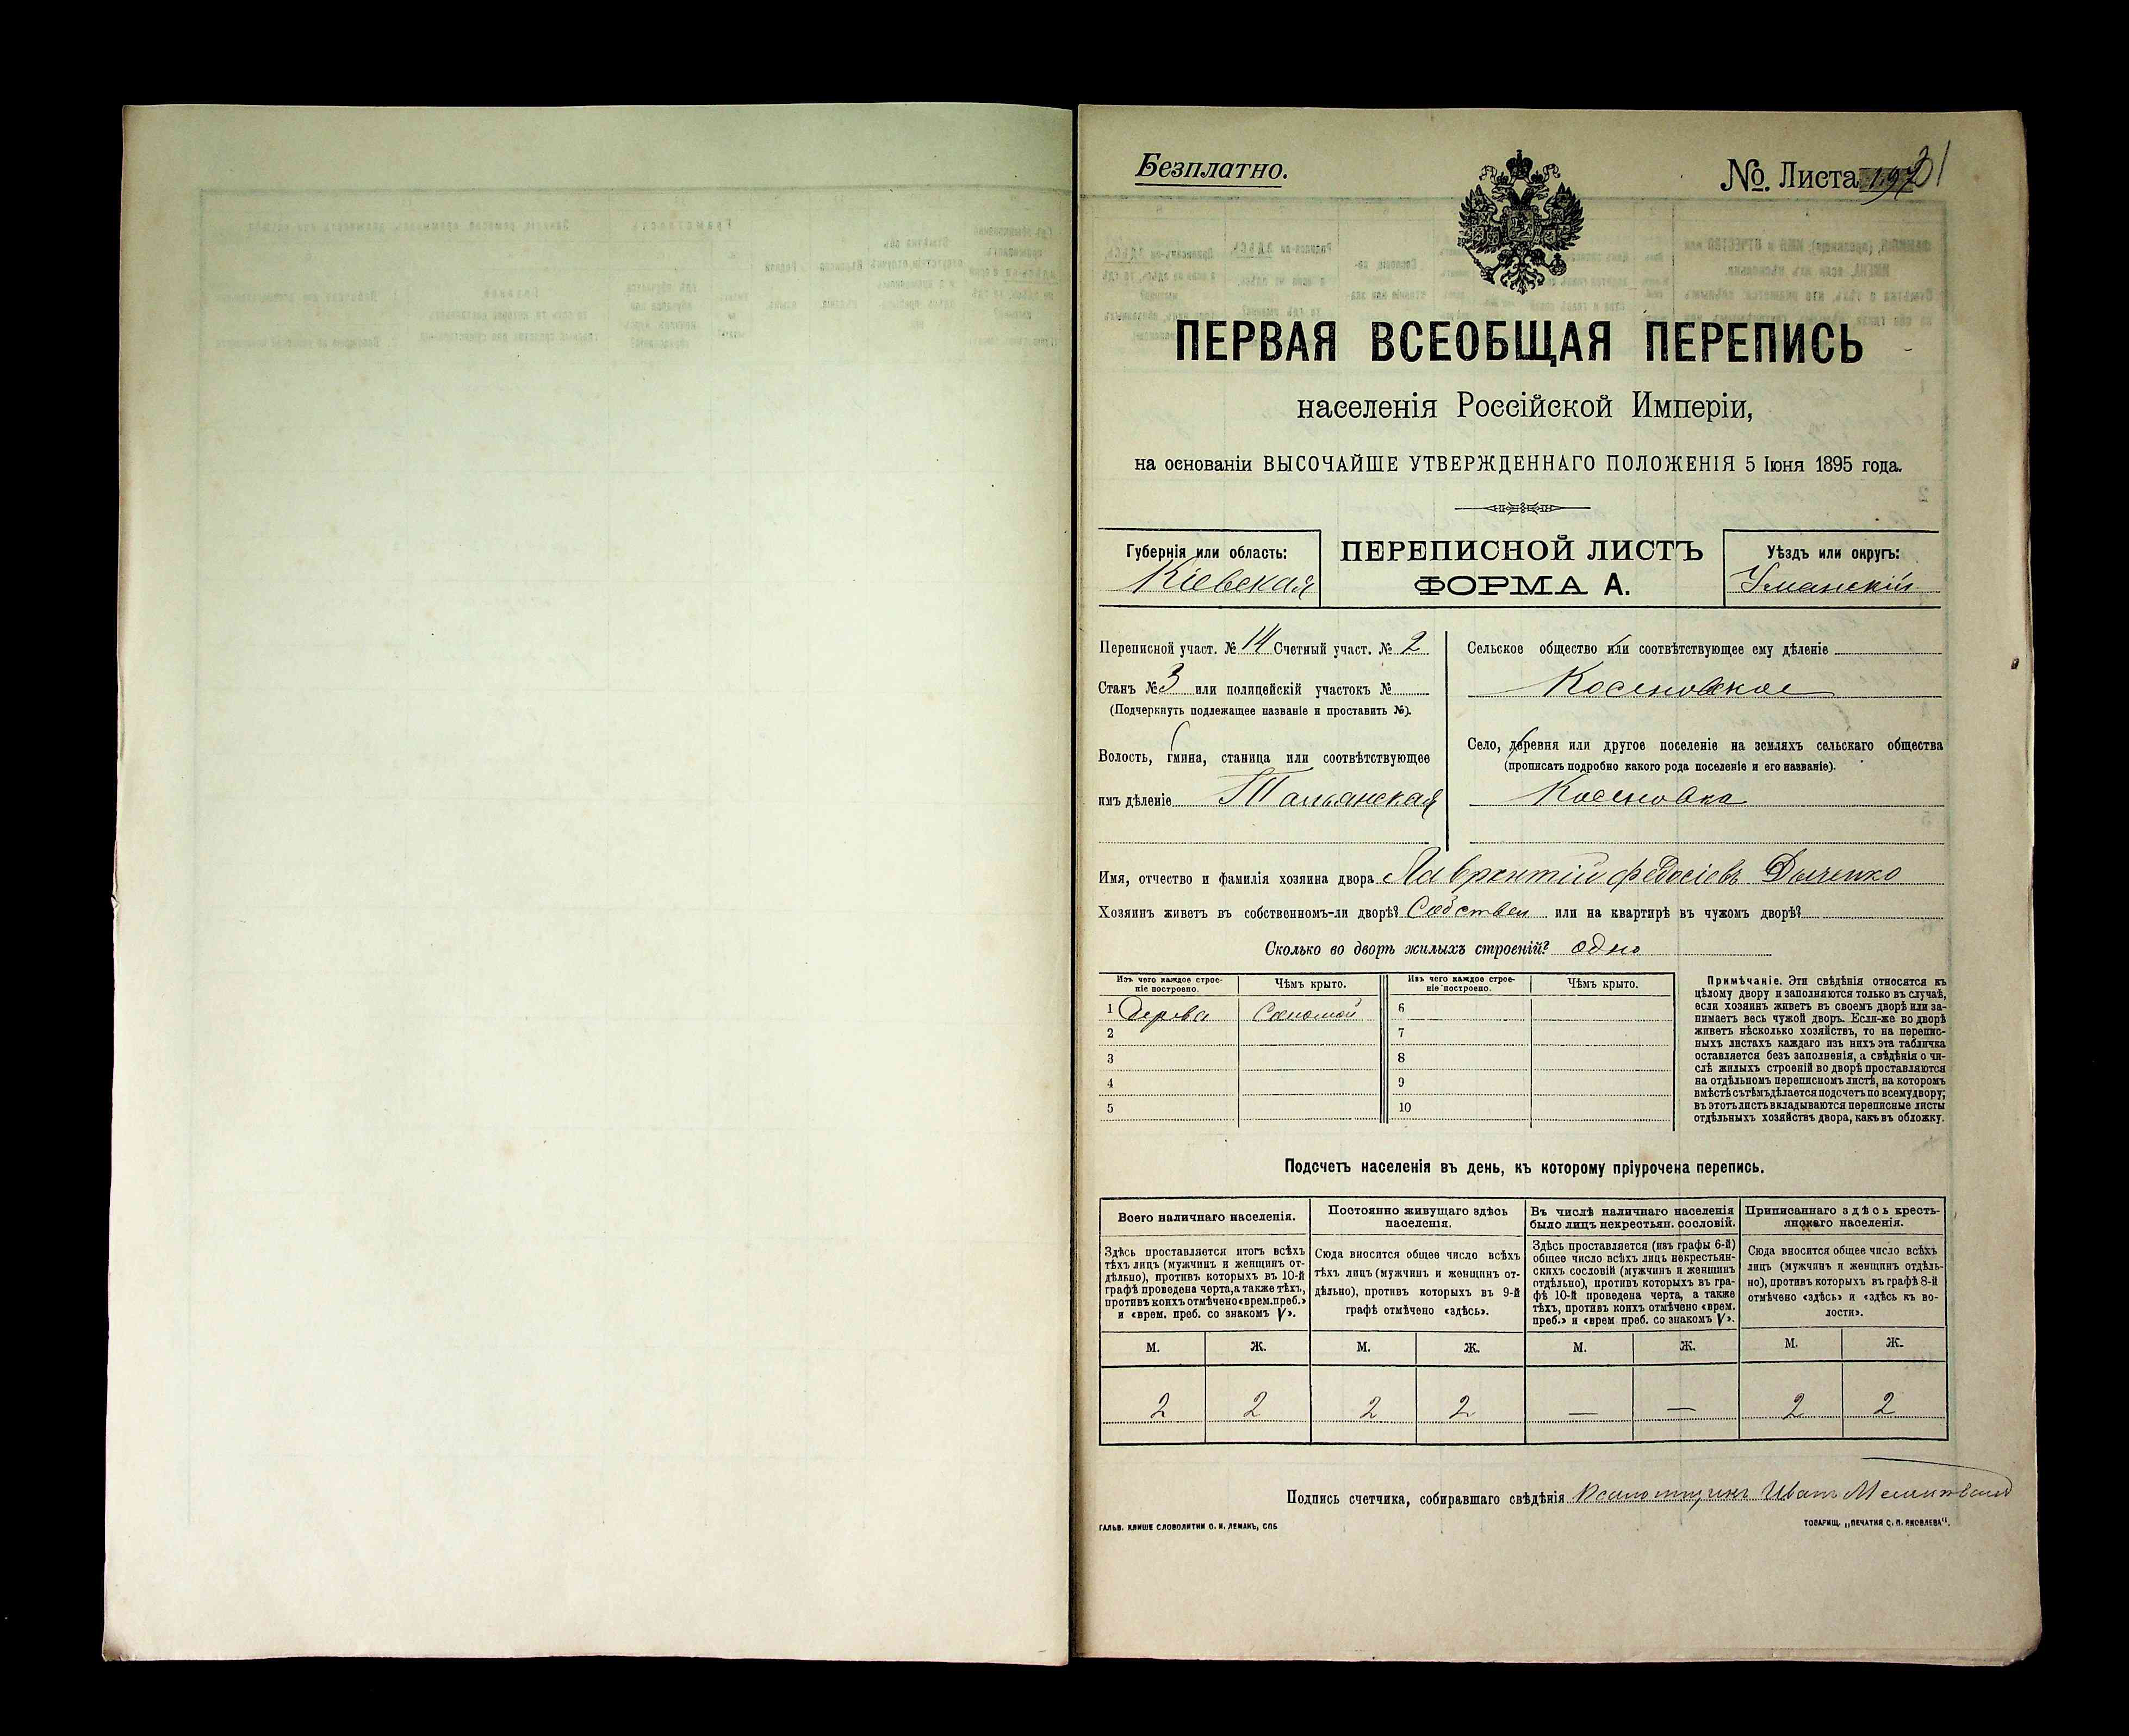 Безплатно.
№. Листа
ПЕРВАЯ ВСЕОБЩАЯ ПЕРЕПИСЬ
населенія Россійской Имперіи,
на основаніи ВЫСОЧАЙШЕ УТВЕРЖДЕННАГО ПОЛОЖЕНІЯ 5 Іюня 1895 года.
Губернія или область:
Кіевская
ПЕРЕПИСНОЙ ЛИСТЪ
ФОРМА А.
Уѣздъ или округъ:
Уманскій
Переписной участ. № 14 Счетный участ. № 2
Станъ № 3 или полицейскій участокъ №
(Подчеркнуть подлежащее названіе и проставить №).
Волость, гмина, станица или соотвѣтствующее
имъ дѣленіе Тальянская
Сельское общество или соотвѣтствующее ему дѣленіе
Косеновское
Село, деревня или другое поселеніе на земляхъ сельскаго общества
(прописать подробно какого рода поселеніе и его названіе).
Косеновка
Имя, отчество и фамилія хозяина двора Лаврентій Федосіевъ Дыченко
Хозяинъ живетъ въ собственномъ-ли дворѣ? Собствен или на квартирѣ въ чужомъ дворѣ?
Сколько во дворѣ жилыхъ строеній? одно
Изъ чего каждое строе-
ніе построено.
Чѣмъ крыто.
Изъ чего каждое строе-
ніе построено.
Чѣмъ крыто.
1 Дерева Соломой 6
2 7
3 8
4 9
5 10
Примѣчаніе. Эти свѣдѣнія относятся къ
цѣлому двору и заполняются только въ случаѣ,
если хозяинъ живетъ въ своемъ дворѣ или за-
нимаетъ весь чужой дворъ. Если-же во дворѣ
живетъ нѣсколько хозяйствъ, то на перепис-
ныхъ листахъ каждаго изъ нихъ эта табличка
оставляется безъ заполненія, а свѣдѣнія о чи-
слѣ жилыхъ строеній во дворѣ проставляются
на отдѣльномъ переписномъ листѣ, на которомъ
вмѣстѣ съ тѣмъ дѣлается подсчетъ по всему двору;
въ этотъ листъ вкладываются переписные листы
отдѣльныхъ хозяйствъ двора, какъ въ обложку.
Подсчетъ населенія въ день, къ которому пріурочена перепись.
Всего наличнаго населенія.
Здѣсь проставляется итогъ всѣхъ
тѣхъ лицъ (мужчинъ и женщинъ от-
дѣльно), противъ которыхъ въ 10-й
графѣ проведена черта, а также тѣхъ,
противъ коихъ отмѣчено «врем. преб.»
и «врем. преб. со знакомъ V».
Постоянно живущаго здѣсь
населенія.
Сюда вносится общее число всѣхъ
тѣхъ лицъ (мужчинъ и женщинъ от-
дѣльно), противъ которыхъ въ 9-й
графѣ отмѣчено «здѣсь».
Въ числѣ наличнаго населенія
было лицъ некрестьян. сословій.
Здѣсь проставляется (изъ графы 6-й)
общее число всѣхъ лицъ некрестьян-
скихъ сословій (мужчинъ и женщинъ
отдѣльно), противъ которыхъ въ гра-
фѣ 10-й проведена черта, а также
тѣхъ, противъ коихъ отмѣчено «врем.
преб.» и «врем преб. со знакомъ V».
Приписаннаго здѣсь кресть-
янскаго населенія.
Сюда вносится общее число всѣхъ
лицъ (мужчинъ и женщинъ отдѣль-
но), противъ которыхъ въ графѣ 8-й
отмѣчено «здѣсь» и «здѣсь къ во-
лости».
М. Ж. М. Ж. М. Ж. М. Ж.
2 2 2 2 — — 2 2
Подпись счетчика, собиравшаго свѣдѣнія Иванъ
ГАЛЬВ. КЛИШЕ СЛОВОЛИТНИ О. И. ЛЕМАНЪ, СПБ
ТОВАРИЩ. „ПЕЧАТНЯ С. П. ЯКОВЛЕВА“.